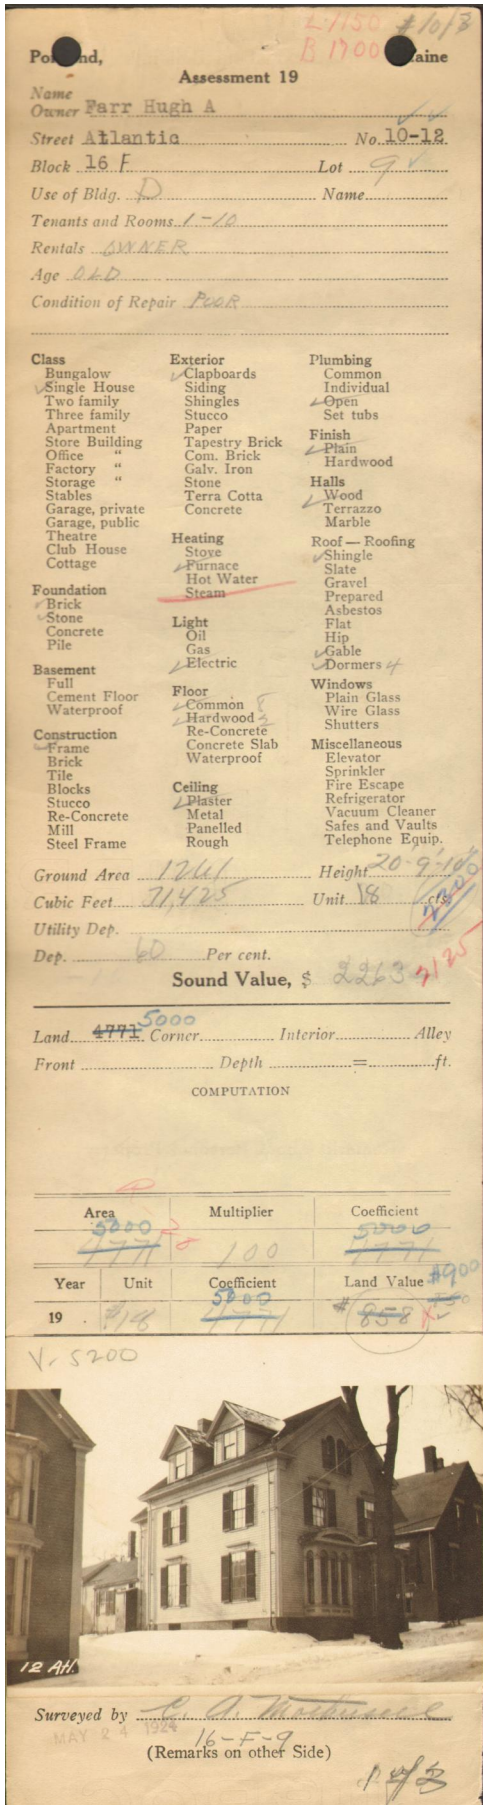 L-1150 #1013
B 1700
Po nd, aine
Assessment 19
Name
Owner Farr Hugh A
Street Atlantic No. 10-12
Block 16 F Lot 9
Use of Bldg. D Name
Tenants and Rooms 1-10
Rentals OWNER
Age OLD
Condition of Repair POOR
Class
Bungalow
Single House
Two family
Three family
Apartment
Store Building
Office "
Factory "
Storage "
Stables
Garage, private
Garage, public
Theatre
Club House
Cottage
Foundation
Brick
Stone
Concrete
Pile
Basement
Full
Cement Floor
Waterproof
Construction
Frame
Brick
Tile
Blocks
Stucco
Re-Concrete
Mill
Steel Frame
Exterior
Clapboards
Siding
Shingles
Stucco
Paper
Tapestry Brick
Com. Brick
Galv. Iron
Stone
Terra Cotta
Concrete
Heating
Stove
Furnace
Hot Water
Steam
Light
Oil
Gas
Electric
Floor
Common 8
Hardwood 2
Re-Concrete
Concrete Slab
Waterproof
Ceiling
Plaster
Metal
Panelled
Rough
Plumbing
Common
Individual
Open
Set tubs
Finish
Plain
Hardwood
Halls
Wood
Terrazzo
Marble
Roof — Roofing
Shingle
Slate
Gravel
Prepared
Asbestos
Flat
Hip
Gable
Dormers 4
Windows
Plain Glass
Wire Glass
Shutters
Miscellaneous
Elevator
Sprinkler
Fire Escape
Refrigerator
Vacuum Cleaner
Safes and Vaults
Telephone Equip.
Ground Area 1261 Height 20-9'-10'
Cubic Feet 71,425 Unit 18 cts.
2300
Utility Dep.
Dep. 60 Per cent.
Sound Value, $ 2263 2125
5000
Land 4771 Corner Interior Alley
Front Depth = ft.
COMPUTATION
Area Multiplier Coefficient
5000 5000
4771 100 4771
Year Unit Coefficient Land Value #900
5000 750
19 . #18 4771 # 858
V-5200
12 Atl.
Surveyed by C. A.
MAY 24 1924
16-F-9
(Remarks on other Side)